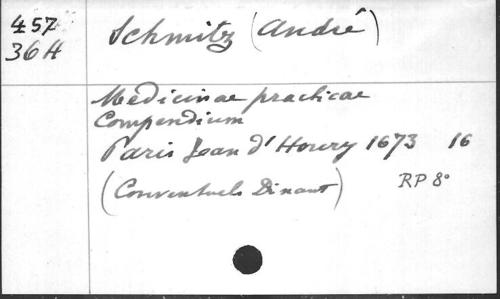 457
36H
Schmitz (André)
Medicinae practicae
Compendium
Paris Jean d'Houry 1673 16
(Conventuels Dinant)
RP 8°